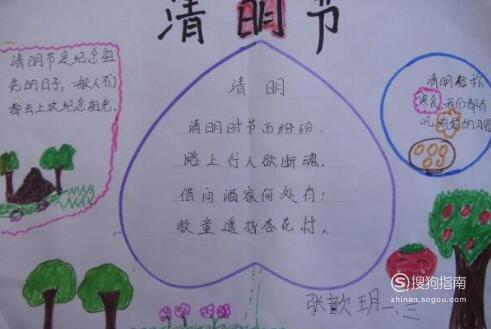 清明节
清明节是纪念祖
先的日子,一般人们
都去上坟纪念祖先。
清明
清明时节雨纷纷,
路上行人欲断魂。
借问酒家何处有?
牧童遥指杏花村。
清明俗称
寒食,我们都有
吃
的习俗
张歆玥 一、三
搜狗指南
zhinan.sogou.com